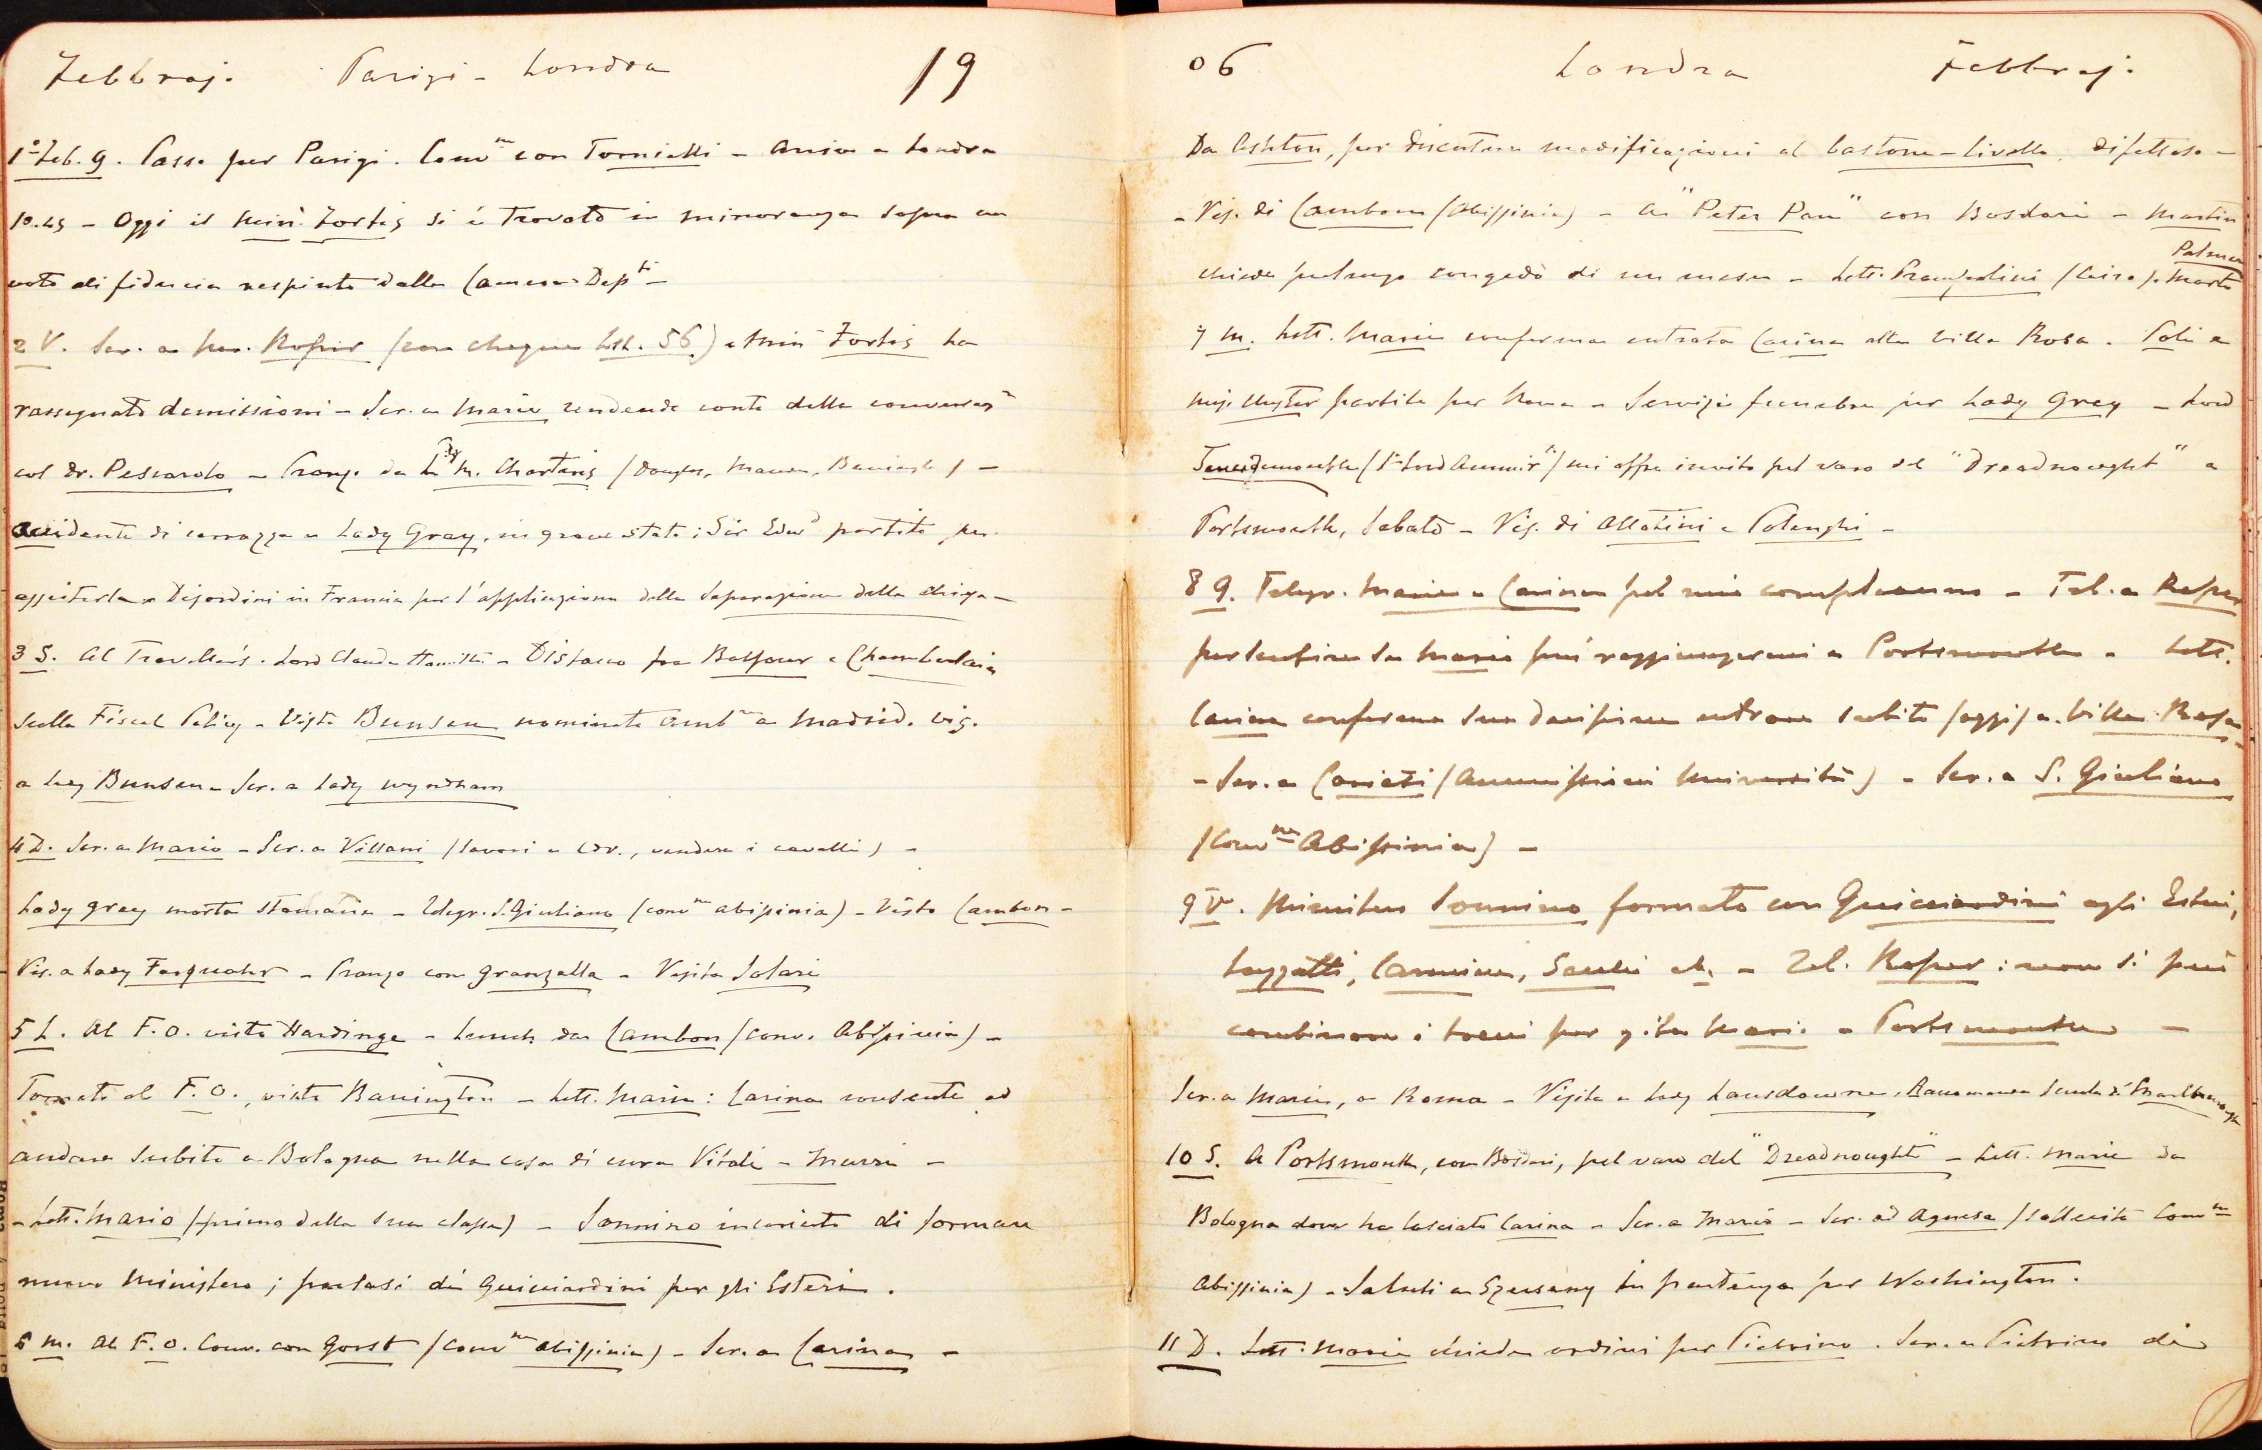 Febbraj. Parigi - Londra 19
1° Feb. G. Passo per Parigi. Conv.ne con Tornielli - Arrivo a Londra
10.45 - Oggi il Min. Fortis si è trovato in minoranza sopra un
voto di fiducia respinto dalla Camera Dep.ti -
2 V. Scr. a Roper (con cheque Lst. 56) - Min Fortis ha
rassegnato demissioni - Scr. a Maria rendendo conto della conversaz.e
col Dr. Pescarolo - Pranzo da Ly M. Charteris (Douglas, ) -
Accidente di carrozza a Lady Grey, in grave stato; Sir Edwd partito per
assisterla - Disordini in Francia per l'applicazione della Separazione della chiesa -
3 S. Al Traveller's. Lord Claude Hamilton - Distacco fra Balfour e Chamberlain
sulla Fiscal Policy - Visto Bunsen nominato Amb.re a Madrid. Vis.
a Lady Bunsen - Scr. a Lady Wyndham
4 D. Scr. a Mario - Scr. a Villani (lavori a , vendere i cavalli) -
Lady Grey morta stamattina - Telegr. S. Giuliano (conv.ne Abissinia) - Visto Cambon -
Vis. a Lady Farquahr - Pranzo con Granzella - Visita Solari
5 L. Al F.O. visto Hardinge - Lunch da Cambon (conv. Abissinia) -
Tornato al F.O., visto Barrington - Lett. Maria: Carina consente ad
andare subito a Bologna nella casa di cura Vitali - Murri -
- Lett. Mario (primo della sua classe) - Sonnino incaricato di formare
nuovo Ministero; parlasi di Guicciardini per gli Esteri.
6 M. Al F.O. Conv. con Gorst (Conv.ne Abissinia) - Scr. a Carina -
06 Londra Febbraj.
Da Ashton, per discutere modificazioni al bastone-livello, difettoso -
- Vis. di Cambon (Abissinia) - Au "Peter Pan" con Bosdari - Martin
chiede prolungo congedo di un mese - Lett. Prampolini (Cairo). Morto
Palmer
7 M. Lett. Maria conferma entrata Carina alla Villa Rosa. Poli e
Miss partite per Roma - Servizio funebre per Lady Grey - Lord
Tweedmouth (1° Lord Ammir.to) mi offre invito pel varo del "Dreadnought" a
Portsmouth, Sabato - Vis. di Allatini e Polenghi -
8 G. Telegr. Maria e Carina pel mio compleanno - Tel. a Roper
per sentire se Maria può raggiungermi a Portsmouth - Lett.
Carina conferma sua decisione entrare subito (oggi) a Villa Rosa -
- Scr. a (Ammissioni Università) - Scr. a S. Giuliano
(Conv.ne Abissinia) -
9 V. Ministero Sonnino formato con Guicciardini agli Esteri,
Luzzatti, Carmine, Sacchi etc. - Tel. Roper: non si può
combinare i treni per gita Maria a Portsmouth -
Scr. a Maria, a Roma - Visita a Lady Lansdowne. Scuola di Marlborough
10 S. A Portsmouth, con Bosdari, pel varo del "Dreadnought" - Lett. Maria da
Bologna dove ha lasciato Carina - Scr. a Maria - Scr. ad Agnesa (sollecito Conv.ne
Abissinia) - Saluti a in partenza per Washington.
11 D. Lett. Maria chiede ordini per Pietrino. Scr. a Pietrino di